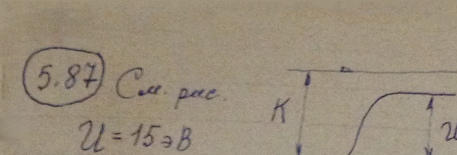 5.87 См. рис.
U = 15 эВ
K
U